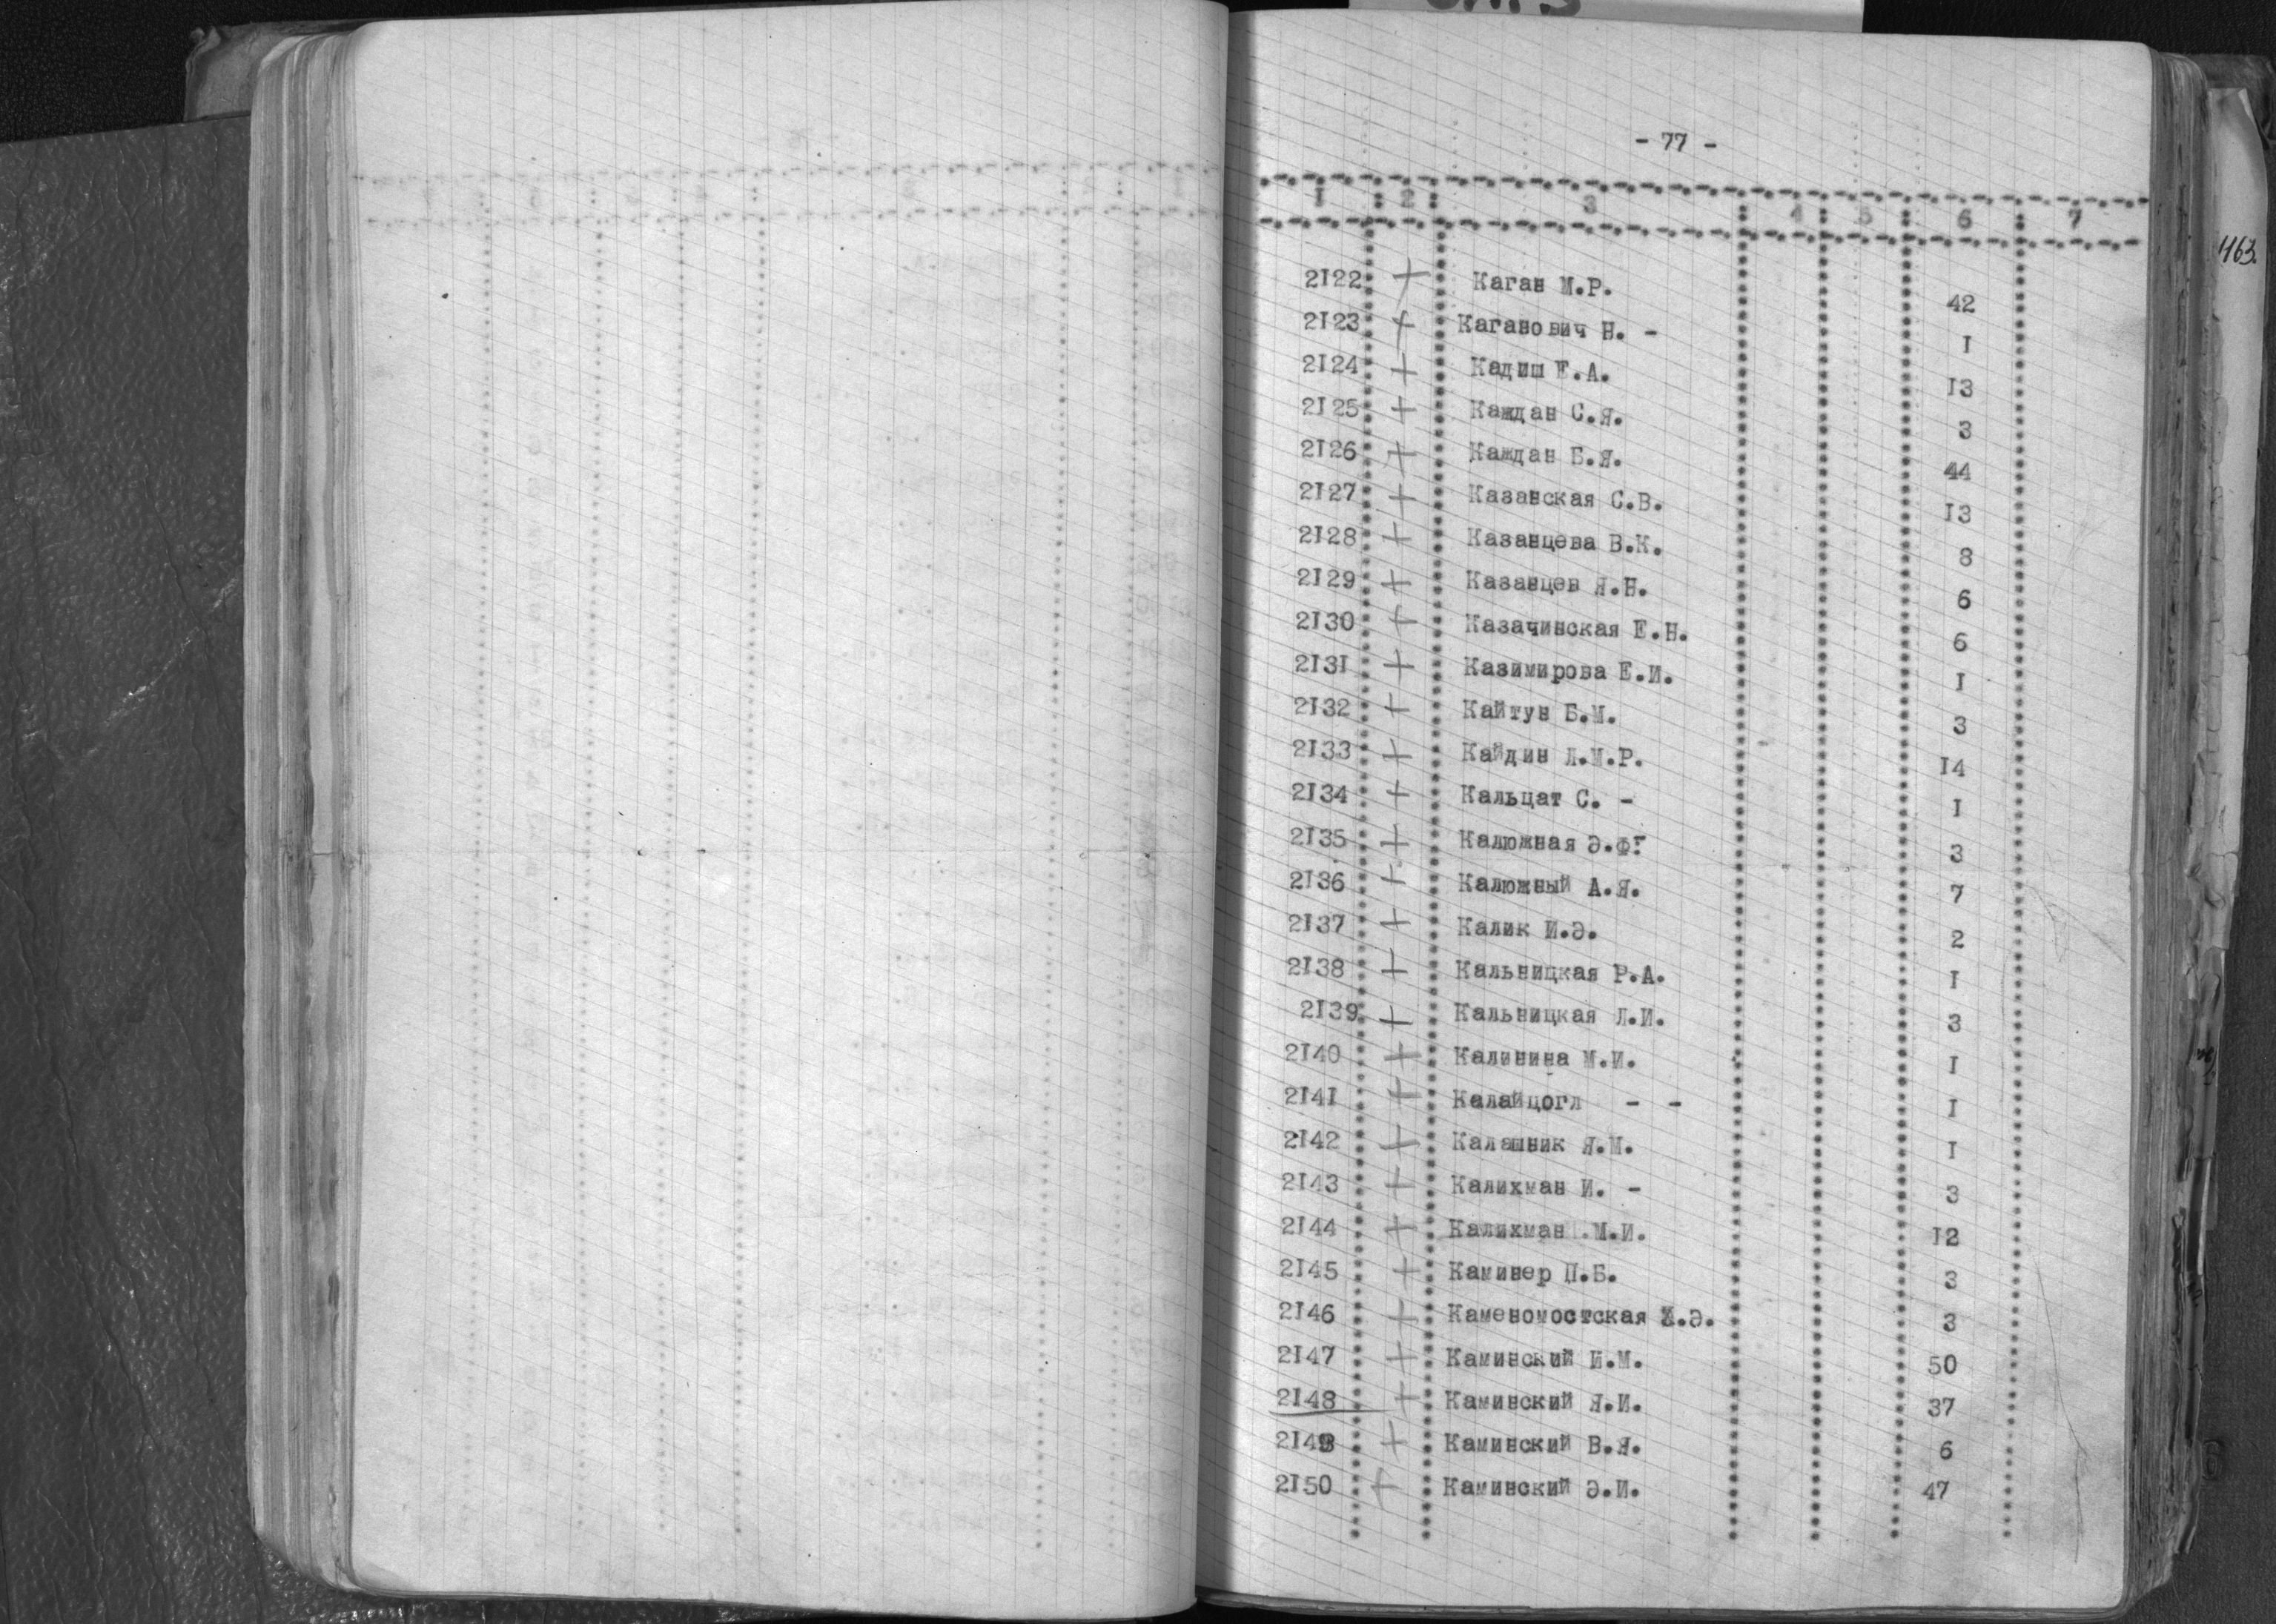 - 77 -
1 2 3 4 5 6 7
2122 + Каган М.Р. 42
2123 + Каганович Н. - 1
2124 + Кадиш Е.А. 13
2125 + Каждан С.Я. 3
2126 + Каждан Б.Я. 44
2127 + Казанская С.В. 13
2128 + Казанцева В.К. 8
2129 + Казанцев Я.Н. 6
2130 + Казачинская Е.Н. 6
2131 + Казимирова Е.И. 1
2132 + Кайтун Б.М. 3
2133 + Кайдин Л.М.Р. 14
2134 + Кальцат С. - 1
2135 + Калюжная Э.Ф. 3
2136 + Калюжный А.Я. 7
2137 + Калик И.Э. 2
2138 + Кальницкая Р.А. 1
2139 + Кальницкая Л.И. 3
2140 + Калинина М.И. 1
2141 + Калайцогл - - 1
2142 + Калашник Я.М. 1
2143 + Калихман И. - 3
2144 + Калихман .М.И. 12
2145 + Каминер П.Б. 3
2146 + Каменомостская .Э. 3
2147 + Каминский И.М. 50
2148 + Каминский Я.И. 37
2149 + Каминский В.Я. 6
2150 + Каминский Э.И. 47
463.